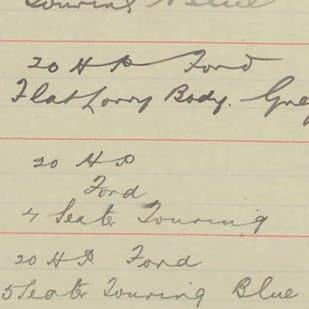 Touring Blue
20 HP Ford
Flat Lorry Body. Grey
20 HP
Ford
4 Seater Touring
20 HP Ford
5 Seater Touring Blue